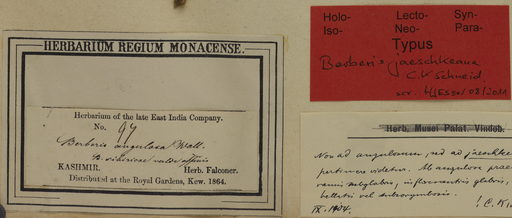 HERBARIUM REGIUM MONACENSE.
Herbarium of the late East India Company.
No. 97
Berberis angulosa Wall.
B. valde affinis
KASHMIR. Herb. Falconer.
Distributed at the Royal Gardens, Kew. 1864.
Holo- Lecto- Syn-
Iso- Neo- Para-
Typus
Berberis jaeschkeana
C K Schneid
scr. 08/2011
Herb. Musei Palat. Vindob.
Non ad angulosam, sed ad jaeschke
pertinere videtur. Ab angulosa
ramis subglabris, inflorescentiis glabris,
IX. 1904. C. K